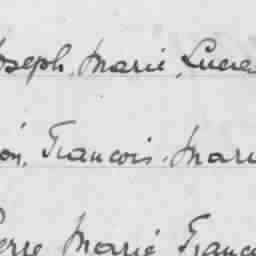 Joseph, Marie, Lucie
on, François, Marie
Pierre Marie Franço